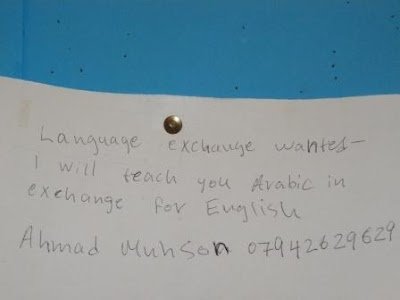 Language exchange wanted-
I will teach you Arabic in
exchange for English
Ahmad Muhson 07942629629